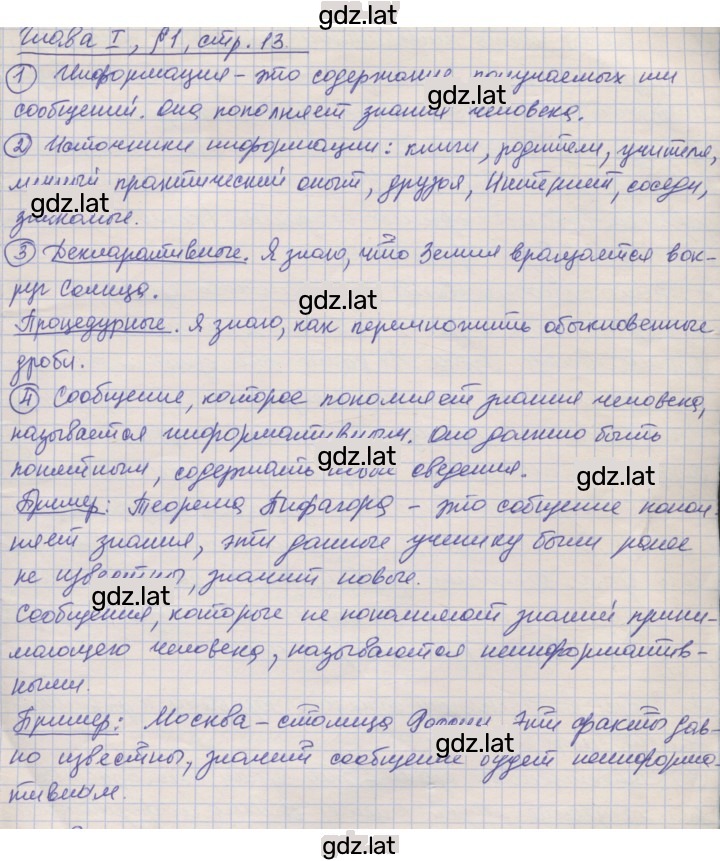 gdz.lat
Глава I, §1, стр. 13.
① Информация – это содержание получаемых им
gdz.lat
сообщений. Она пополняет знания человека.
② Источники информации: книги, родители, учителя,
личный практический опыт, друзья, Интернет, соседи,
gdz.lat
знакомые.
③ Декларативные. Я знаю, что Земля вращается вок-
руг Солнца.
gdz.lat
Процедурные. Я знаю, как перемножить обыкновенные
дроби.
gdz.lat
④ Сообщение, которое пополняет знания человека,
называется информативным. Оно должно быть
gdz.lat
понятным, содержать новые сведения.
gdz.lat
Пример: Теорема Пифагора – это собщение попол-
няет знания, эти данные ученику были ранее
не известны, значит новые.
gdz.lat
Сообщения, которые не пополняют знаний прини-
мающего человека, называются неинформатив-
ными.
Пример: Москва – столица России. Эти факты дав-
gdz.lat
но известны, значит сообщение будет неинформа-
тивным.
gdz.lat